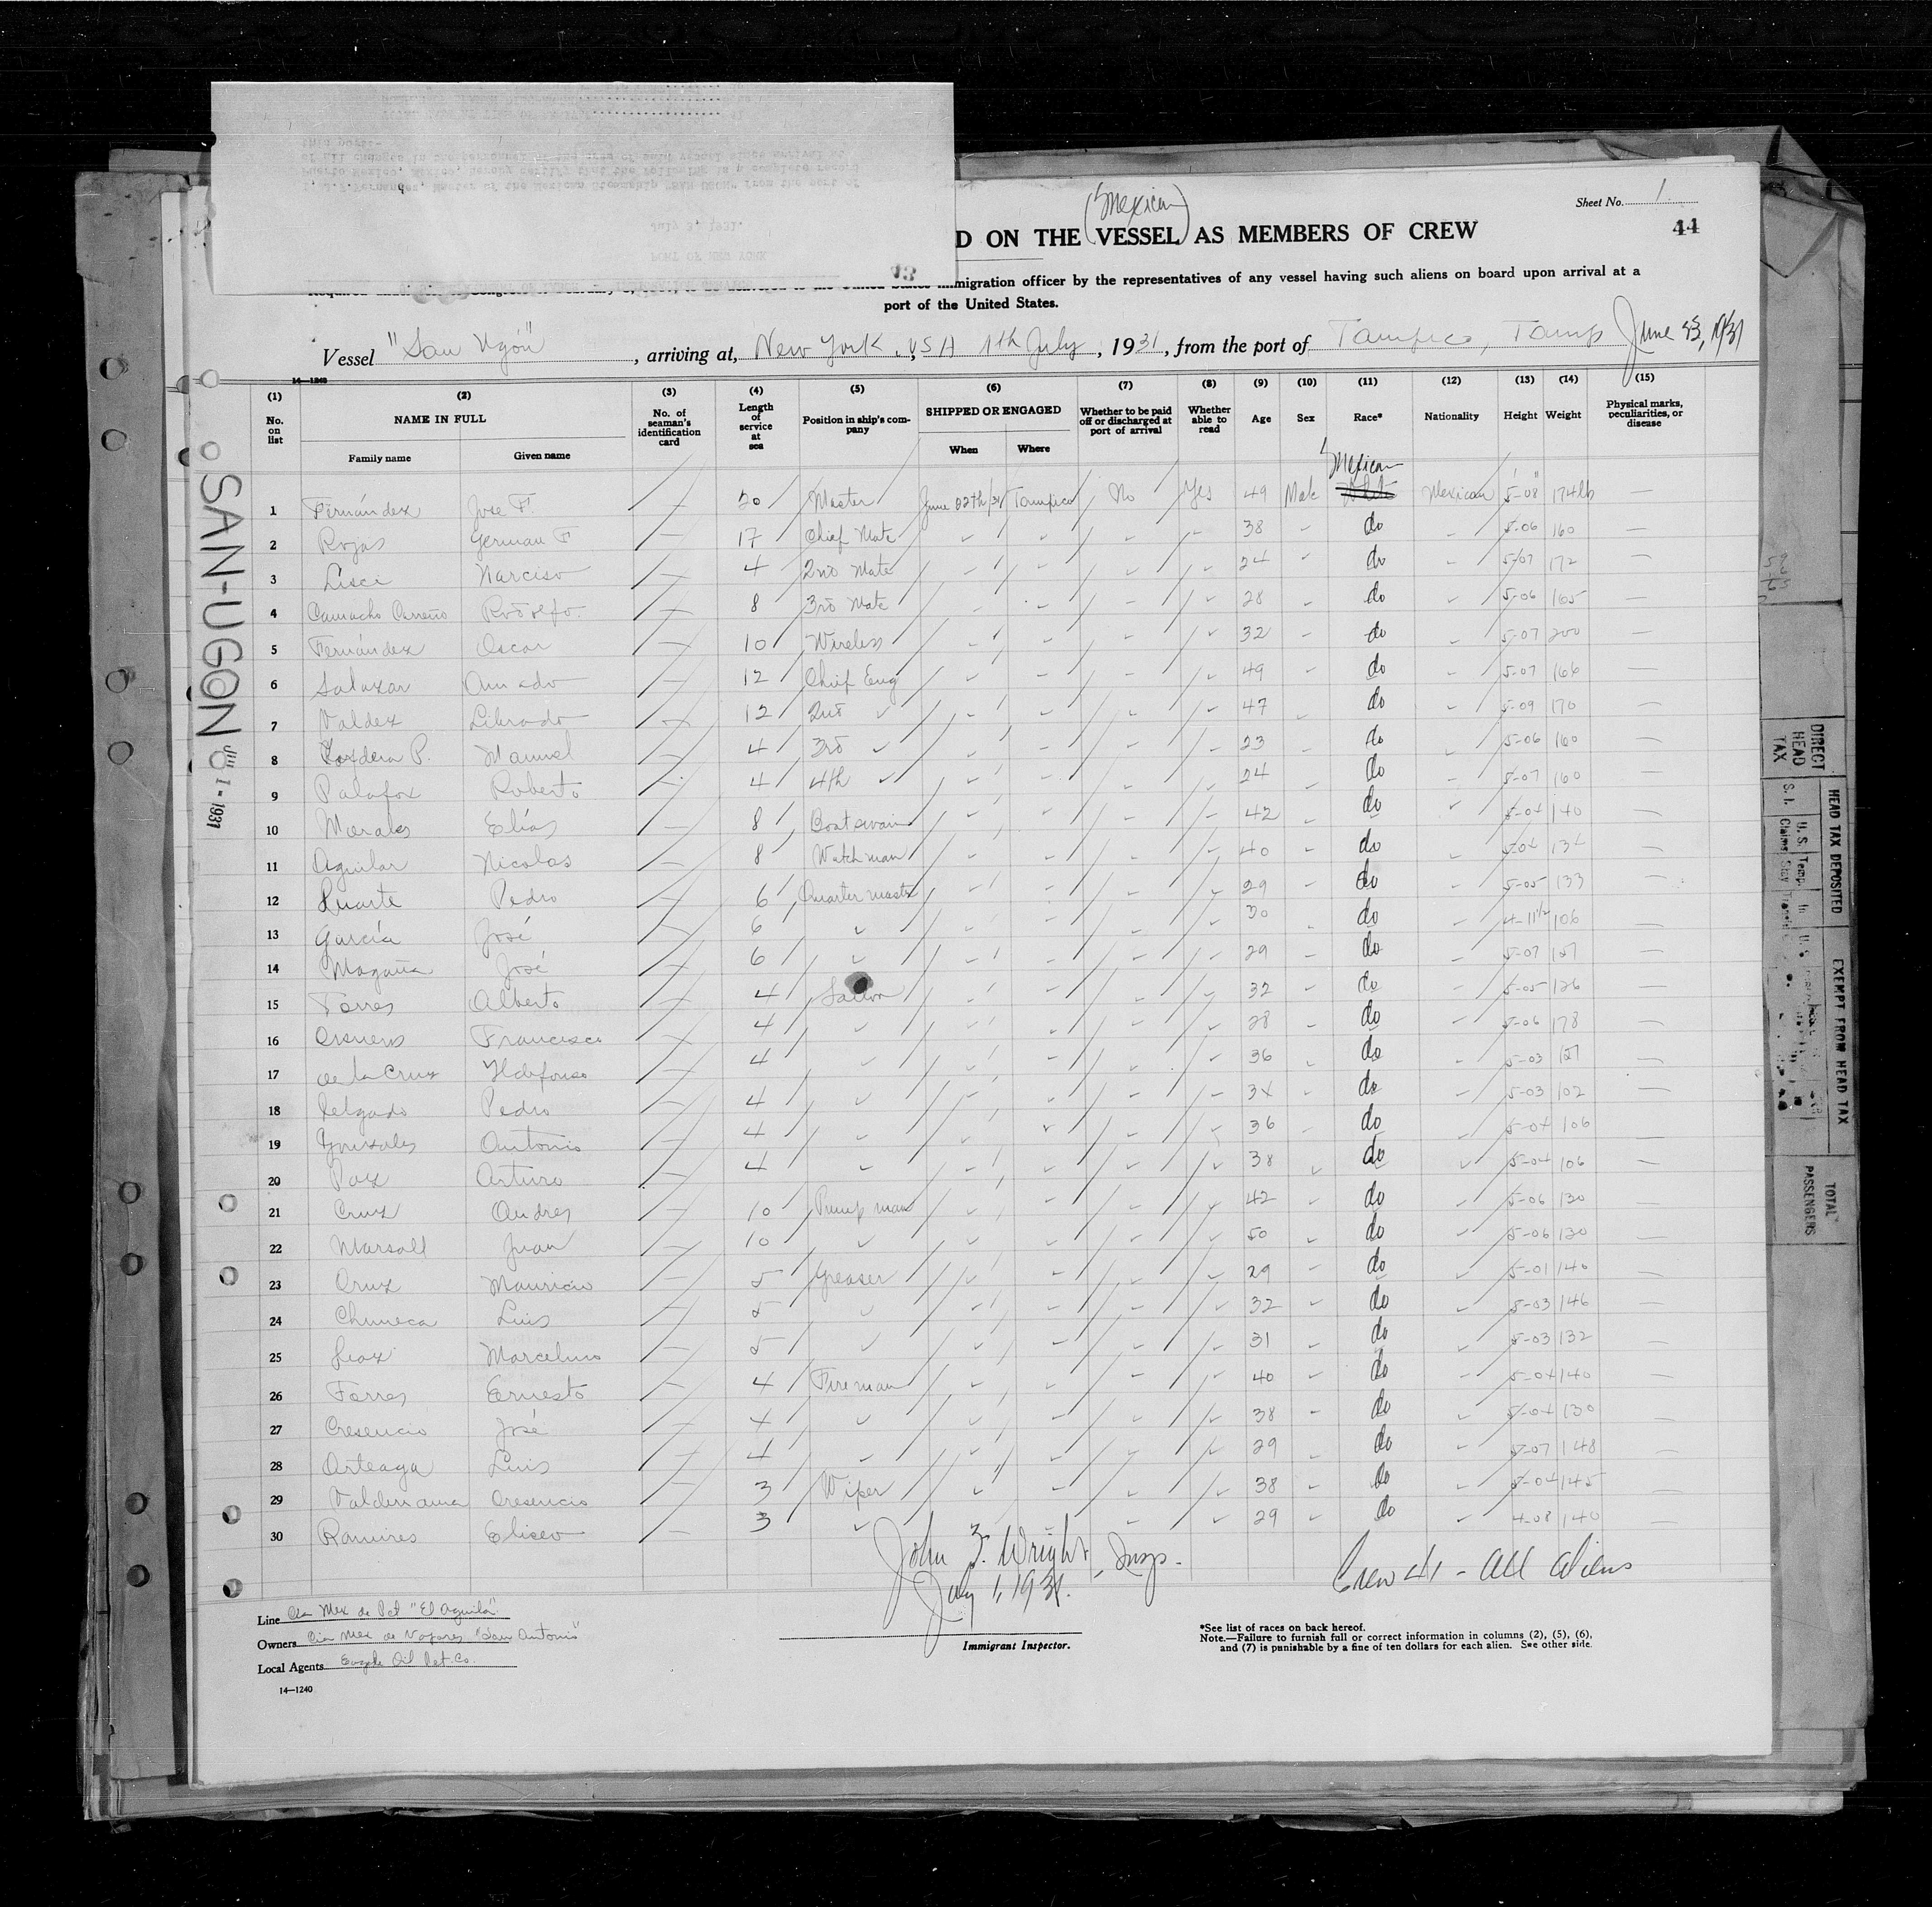 Sheet No. 1
44
(Mexican)
D ON THE VESSEL AS MEMBERS OF CREW
immigration officer by the representatives of any vessel having such aliens on board upon arrival at a
port of the United States.
Vessel "San Ugón", arriving at, New York, USA 1th July, 1931, from the port of Tampico, Tamp June 23, 1931
14—1240
(1) (2) (3) (4) (5) (6) (7) (8) (9) (10) (11) (12) (13) (14) (15)
No. on list NAME IN FULL No. of seaman's identification card Length of service at sea Position in ship's company SHIPPED OR ENGAGED Whether to be paid off or discharged at port of arrival Whether able to read Age Sex Race* Nationality Height Weight Physical marks, peculiarities, or disease
Family name Given name When Where
Mexican
1 Fernández Jose F. — 20 Master June 22th/31 Tampico No Yes 49 Male White Mexican 5-08" 174lb —
2 Rojas German F — 17 Chief Mate 38 do 5-06 160 —
3 Narciso — 4 2nd Mate 24 do 5-07 172 —
4 Camacho Carreño Rodolfo. — 8 3rd Mate 28 do 5-06 165 —
5 Fernández Oscar — 10 Wireless 32 do 5-07 200 —
6 Salazar Amado — 12 Chief Eng 49 do 5-07 166 —
7 Valdez Librado — 12 2nd 47 do 5-09 170 —
8 P. Manuel — 4 3rd 23 do 5-06 160 —
9 Palafox Roberto 4 4th 24 do 5-07 160 —
10 Morales Elías — 8 Boatswain 42 do 5-04 140 —
11 Aguilar Nicolas — 8 Watchman 40 do 5-04 134 —
12 Duarte Pedro — 6 Quarter master 29 do 5-05 133 —
13 García José — 6 30 do 4-11 1/2 106 —
14 Magaña José — 6 29 do 5-07 157 —
15 Torres Alberto — 4 Sailor 32 do 5-05 126 —
16 Cisneros Francisco — 4 28 do 5-06 178 —
17 de la Cruz Ildefonso — 4 36 do 5-03 127 —
18 Delgado Pedro — 4 34 do 5-03 102 —
19 Gonzales Antonio — 4 36 do 5-04 106 —
20 Paz Arturo — 4 38 do 5-04 106 —
21 Cruz Andres — 10 Pump man 42 do 5-06 130 —
22 Marsall Juan — 10 50 do 5-06 130 —
23 Cruz Mauricio — 5 Greaser 29 do 5-01 140 —
24 Luis — 5 32 do 5-03 146 —
25 Marcelino — 5 31 do 5-03 132 —
26 Torres Ernesto — 4 Fireman 40 do 5-04 140 —
27 Cresencio José — 4 38 do 5-04 130 —
28 Arteaga Luis — 4 29 do 5-07 148 —
29 Valderrama Cresencio — 3 Wiper 38 do 5-04 145 —
30 Ramires Eliseo — 3 29 do 4-08 140 —
John F. Wright, Insp.
July 1, 1931.
Crew 41 - All Aliens
Line Cia Mex de Pet "El Aguila"
Owners Cia Mex de Vapores "San Antonio"
Local Agents Eagle Oil Pet. Co.
14—1240
Immigrant Inspector.
*See list of races on back hereof.
Note.—Failure to furnish full or correct information in columns (2), (5), (6),
and (7) is punishable by a fine of ten dollars for each alien. See other side.
SAN-UGON JUL 1 - 1931
DIRECT HEAD TAX
HEAD TAX DEPOSITED
EXEMPT FROM HEAD TAX
TOTAL PASSENGERS